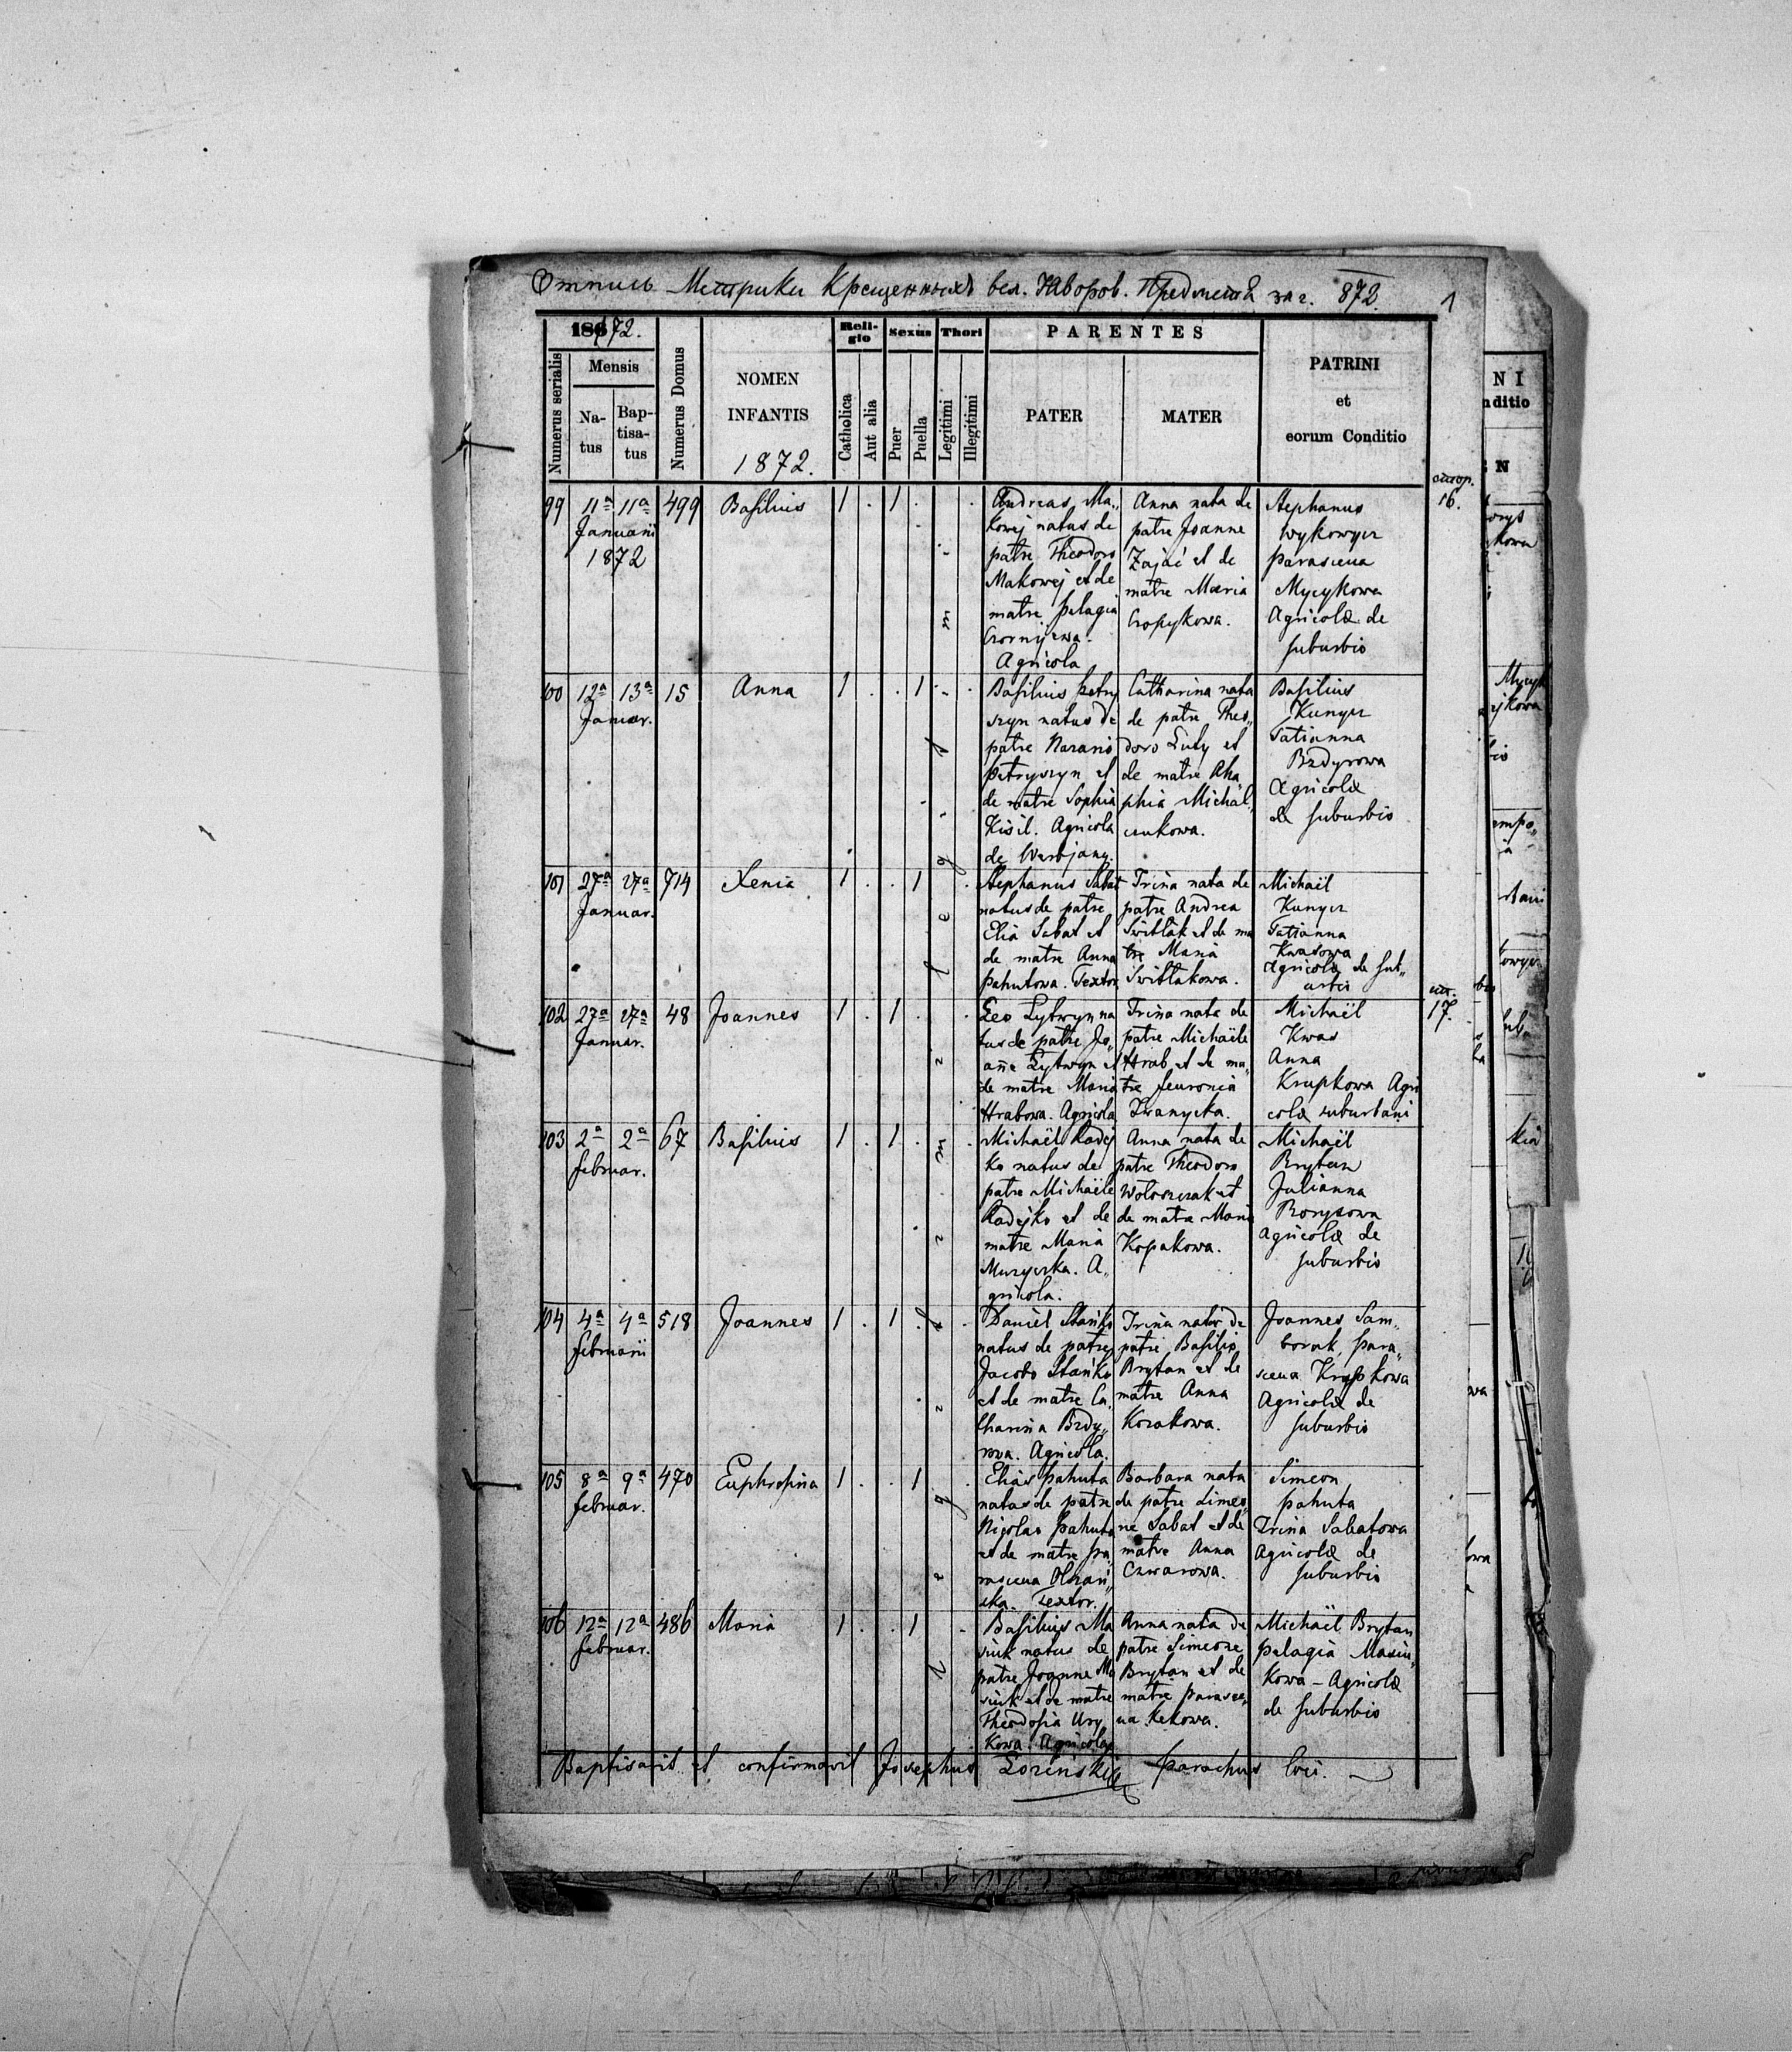 Отпись Метрики Крещенныхъ вел. Яворов. Предместья за г. 872.
1
186 72.
Numerus serialis
Mensis
Natus
Baptisatus
Numerus Domus
NOMEN
INFANTIS
1872.
Religio
Catholica
Aut alia
Sexus
Puer
Puella
Thori
Legitimi
Illegitimi
PARENTES
PATER
MATER
PATRINI
et
eorum Conditio
99 11a 11a 499 Basilius 1 . 1 .
Januarii
1872
Andreas Ma„
kowej natus de
patre Theodoro
Makowej et de
matre Pelagia
Czornijewa.
Agricola
Anna nata de
patre Joanne
Zajać et de
matre Maria
Czopykowa.
Stephanus
Wykowycz
Parasceua
Mycykowa
Agricolæ de
suburbio
16.
100 12a 13a 15 Anna 1 . . 1
Januar.
Basilius Petry
szyn natus de
patre Nazario
Petryszyn et
de matre Sophia
Kisil. Agricola
de Werbjany.
Catharina nata
de patre Theo„
doro Luty et
de matre Aha
phia Michal„
czukowa.
Basilius
Kunycz
Tatianna
Bzdyrowa
Agricolæ
de suburbio
101 27a 27a 714 Xenia 1 . . 1
Januar.
Stephanus Sabat
natus de patre
Elia Sabat et
de matre Anna
Pahutowa. Textor
Irina nata de
patre Andrea
Switlak et de ma
tre Maria
Switlakowa.
Michaël
Kunycz
Tatianna
Kwasowa
Agricolæ de sub„
urbio
102 27a 27a 48 Joannes 1 . 1 .
Januar.
Leo Lytwyn na
tus de patre Jo„
anne Lytwyn et
de matre Maria
Hrabowa. Agricola
Irina nata de
patre Michaële
Hrab et de ma„
tre Feuronia
Iwanycka.
Michaël
Kwas
Anna
Krupkowa Agri
colæ suburbani
17.
103 2a 2a 67 Basilius 1 . 1 .
Februar.
Michaël Radej
ko natus de
patre Michaële
Radejko et de
matre Maria
Muzyczka. A„
gricola.
Anna nata de
patre Theodoro
Woloszczak et
de matre Maria
Kopakowa.
Michaël
Brytan
Julianna
Borysowa
Agricolæ de
suburbio
104 4a 4a 518 Joannes 1 . 1 .
Februarii
Daniel Stańko
natus de patre
Jacobo Stańko
et de matre Ca„
tharina Bzdy„
rowa. Agricola.
Irina nata de
patre Basilio
Brytan et de
matre Anna
Kozakowa.
Joannes Sam„
borak, Para„
sceua Krupkowa
Agricolæ de
suburbio
105 8a 9a 470 Euphrosina 1 . . 1
Februar.
Elias Pahuta
natus de patre
Nicolao Pahuta
et de matre Pa„
rasceua Olszań„
ska. Textor.
Barbara nata
de patre Simeo„
ne Sabat et de
matre Anna
Czwarowa.
Simeon
Pahuta
Irina Sabatowa
Agricolæ de
suburbio
106 12a 12a 486 Maria 1 . . 1
Februar.
Basilius Ma
siuk natus de
patre Joanne Ma
siuk et de matre
Theodosia Ury
kowa. Agricola
Anna nata de
patre Simeone
Brytan et de
matre Parasce„
ua Kekowa.
Michaël Brytan
Pelagia Masiu„
kowa - Agricolæ
de suburbio
Baptisavit et confirmavit Josephus Loziński Parochus loci.